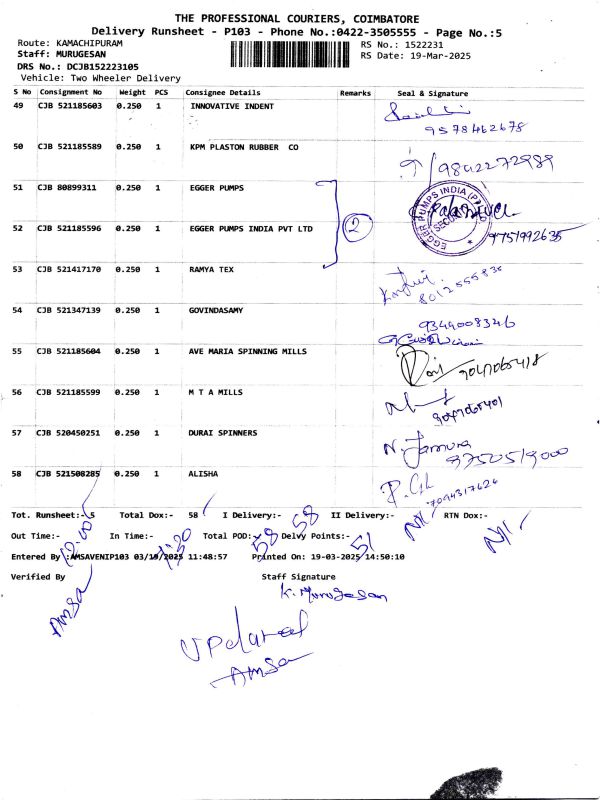 THE PROFESSIONAL COURIERS, COIMBATORE
Delivery Runsheet - P103 - Phone No.:0422-3505555 - Page No.:5
Route: KAMACHIPURAM RS No.: 1522231
Staff: MURUGESAN RS Date: 19-Mar-2025
DRS No.: DCJB152223105
Vehicle: Two Wheeler Delivery
S No Consignment No Weight PCS Consignee Details Remarks Seal & Signature
49 CJB 521185603 0.250 1 INNOVATIVE INDENT
9578462678
50 CJB 521185589 0.250 1 KPM PLASTON RUBBER CO
9842272989
51 CJB 80899311 0.250 1 EGGER PUMPS
EGGER PUMPS INDIA (P)
2
52 CJB 521185596 0.250 1 EGGER PUMPS INDIA PVT LTD
9751992635
53 CJB 521417170 0.250 1 RAMYA TEX
8012555836
54 CJB 521347139 0.250 1 GOVINDASAMY
9344008346
55 CJB 521185604 0.250 1 AVE MARIA SPINNING MILLS
9047065418
56 CJB 521185599 0.250 1 M T A MILLS
9047065401
57 CJB 520450251 0.250 1 DURAI SPINNERS
9750519000
58 CJB 521508285 0.250 1 ALISHA
7094317626
Tot. Runsheet:- 5 Total Dox:- 58 I Delivery:- 58 II Delivery:- Nil RTN Dox:- Nil
Out Time:- 12.00 In Time:- 1.30 Total POD:- 58 Delvy Points:- 51
Entered By :AMSAVENIP103 03/19/2025 11:48:57 Printed On: 19-03-2025 14:50:10
Verified By Staff Signature
Amsa K. Murugesan
Updated
Amsa